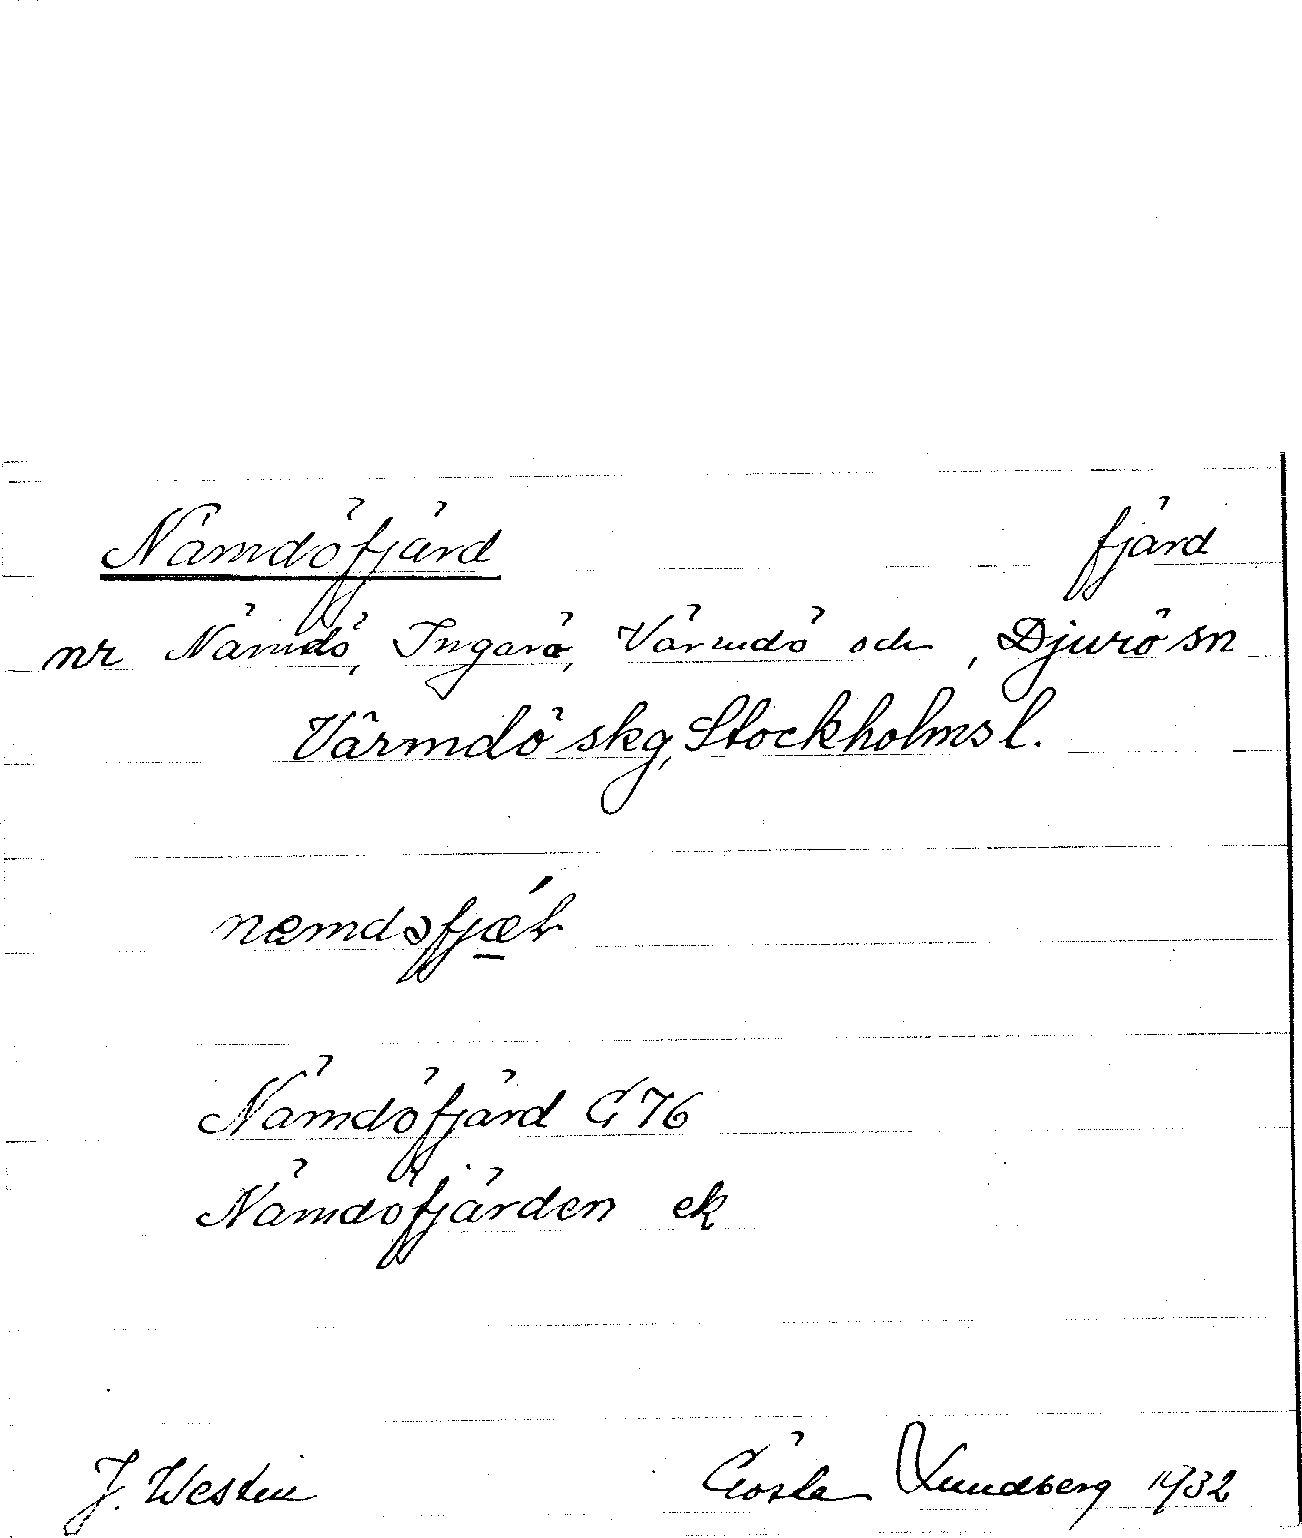 Nämdöfjärd fjärd
nr Nämdö, Ingarö, Värmdö och , Djurö sn
Värmdö skg, Stockholms l.
næmdɔfjǽr
Nämdöfjärd G 76
Nämdöfjärden ek
J. Westin Gösta Lundberg 1932